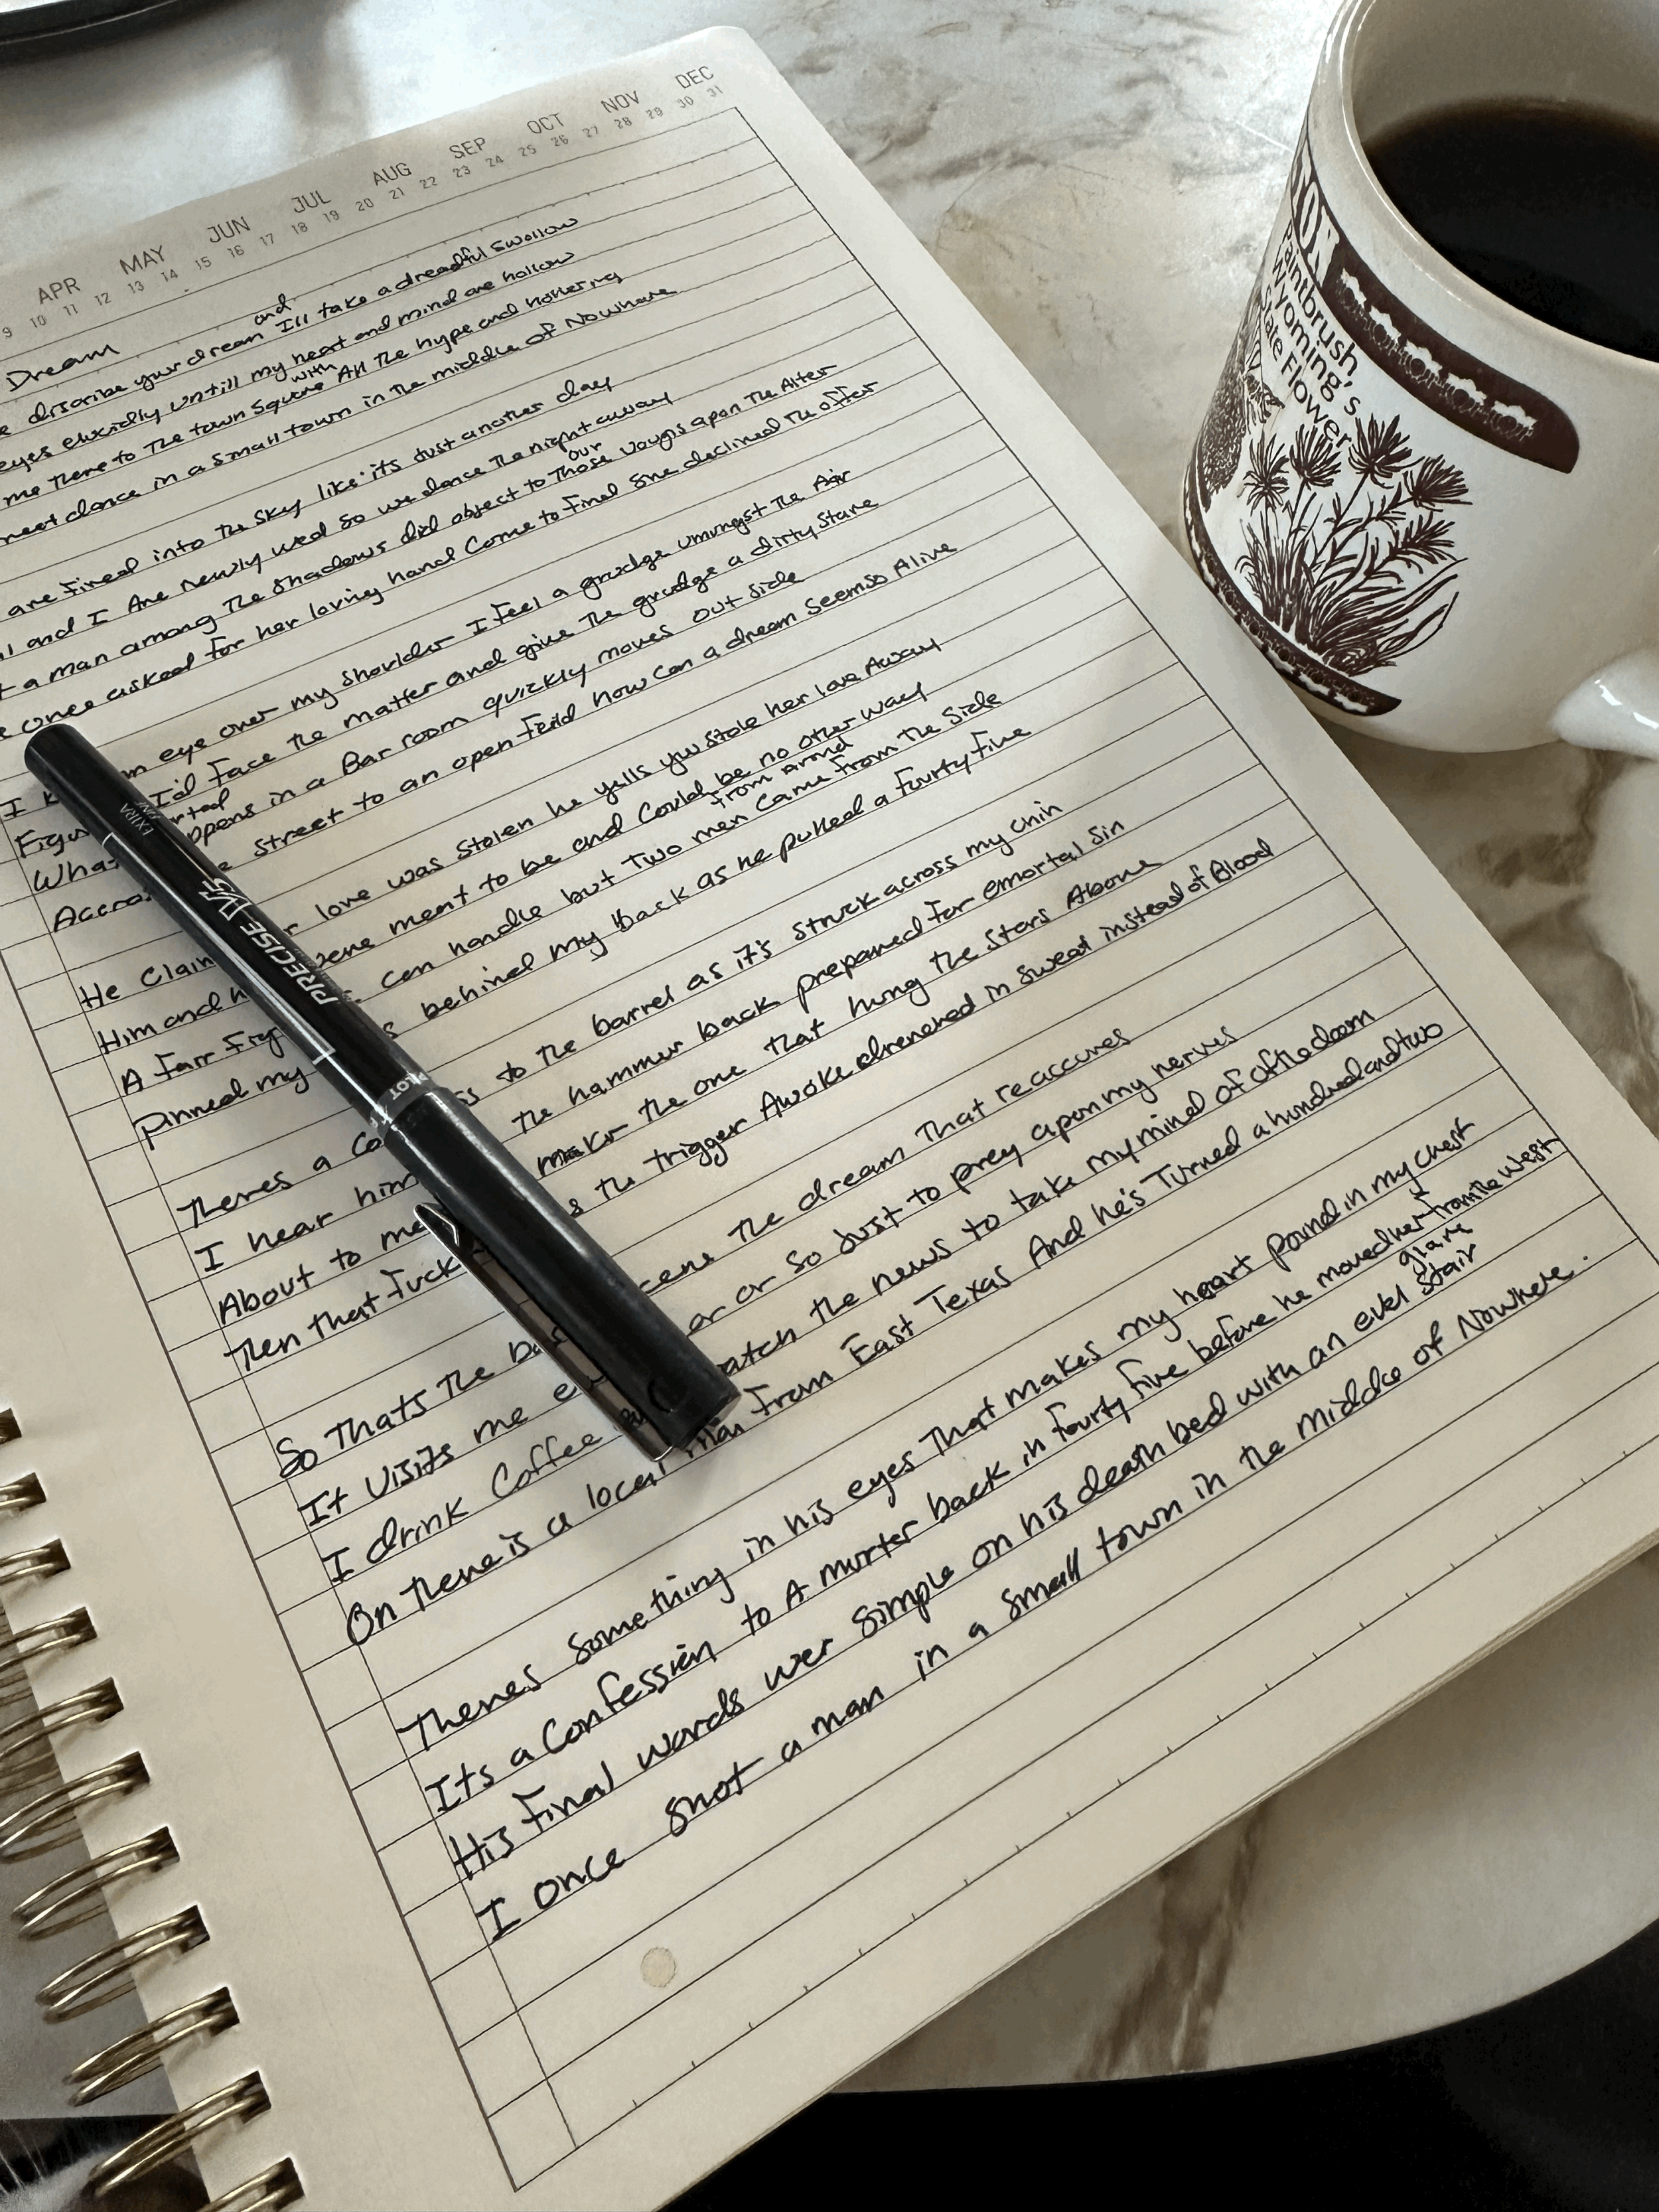 APR MAY JUN JUL AUG SEP OCT NOV DEC
9 10 11 12 13 14 15 16 17 18 19 20 21 22 23 24 25 26 27 28 29 30 31
Dream
and
discribe your dream I'll take a dreadful swollow
eyes elucidly untill my heart and mind are hollow
with
me there to the town square All the hype and hollering
neet dance in a small town in the middle of Nowhere
are fired into the sky like it's just another day
and I Are newly wed so we dance the night away
our
a man among the shadows did object to those vougns apon the Alter
once asked for her loving hand come to find she declined the offer
I k eye over my shoulder I feel a grudge umungst the Air
Figu I'd face the matter and give the grudge a dirty stare
rted
What ppens in a Bar room quickly moves out side
Accros street to an open field how can a dream seems so Alive
He Claim r love was stolen he yells you stole her love Away
Him and h were ment to be and could be no other way
from around
A fair fig can handle but two men came from the side
Pinned my s behind my back as he pulled a fourty five
Theres a co ss to the barrel as it's struck across my chin
I hear him the hammer back prepared for emortal sin
About to me make the one that hung the stars Above
Then that fuck s the trigger Awoke drenched in sweat instead of Blood
So thats the ba cens the dream that reaccures
It visits me e or so just to prey apon my nerves
I drink coffee watch the news to take my mind of of the doom
On there is a local man from East Texas And he's Turned a hundred and two
Theres something in his eyes that makes my heart pound in my chest
Its a confession to A murter back in fourty five before he moved her from the west
glare
His final words wer simple on his death bed with an evel stair
I once shot a man in a small town in the middle of Nowhere.
EXTRA
PRECISE V5
PILOT
Paintbrush,
Wyoming's
State Flower